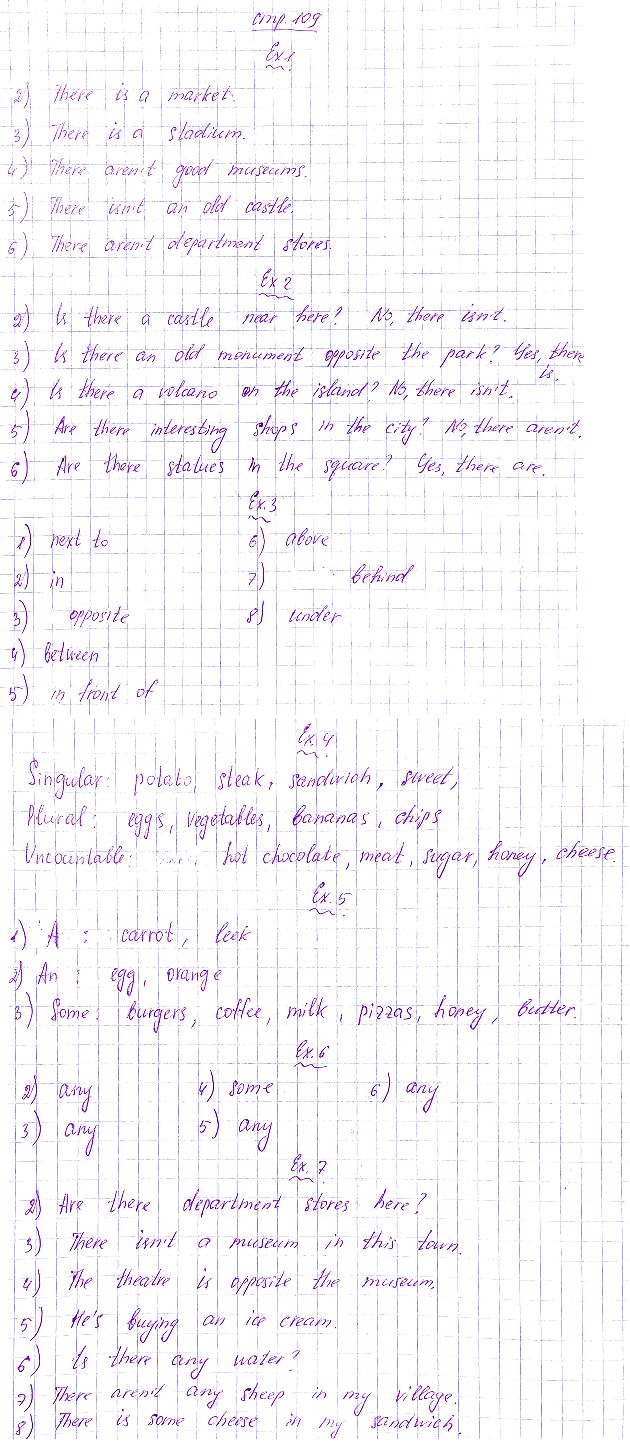 стр. 109
Ex 1
2) There is a market.
3) There is a stadium.
4) There aren't good museums.
5) There isn't an old castle.
6) There aren't department stores.
Ex 2
2) Is there a castle near here? No, there isn't.
3) Is there an old monument opposite the park? Yes, there
is.
4) Is there a volcano on the island? No, there isn't.
5) Are there interesting shops in the city? No, there aren't.
6) Are there statues in the square? Yes, there are.
Ex. 3
1) next to 6) above
2) in 7) behind
3) opposite 8) under
4) between
5) in front of
Ex. 4
Singular: potato, steak, sandwich, sweet,
Plural: eggs, vegetables, bananas, chips
Uncountable: hot chocolate, meat, sugar, honey, cheese.
Ex. 5
1) A : carrot, leek
2) An : egg, orange
3) Some: burgers, coffee, milk, pizzas, honey, butter.
Ex. 6
2) any 4) some 6) any
3) any 5) any
Ex. 7
2) Are there department stores here?
3) There isn't a museum in this town.
4) The theatre is opposite the museum.
5) He's buying an ice cream.
6) Is there any water?
7) There aren't any sheep in my village.
8) There is some cheese in my sandwich.